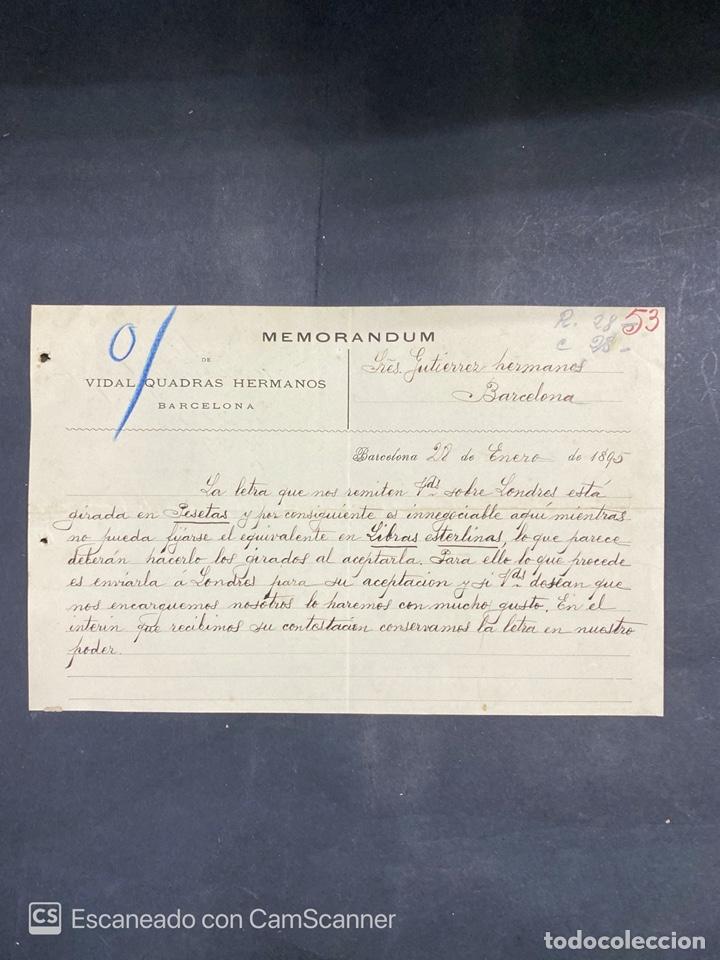 O/
R. 28 -
53
C 28 -
MEMORANDUM
DE
VIDAL QUADRAS HERMANOS
BARCELONA
Sres. Gutierrez hermanos
Barcelona
Barcelona 28 de Enero de 1895
La letra que nos remiten Vds sobre Londres está
girada en Pesetas y por consiguiente es innegociable aquí mientras
no pueda fijarse el equivalente en Libras esterlinas, lo que parece
deberán hacerlo los girados al aceptarla. Para ello lo que procede
es enviarla á Londres para su aceptacion y si Vds desean que
nos encarguemos nosotros lo haremos con mucho gusto. En el
interin que recibimos su contestación conservamos la letra en nuestro
poder.
CS Escaneado con CamScanner
todocoleccion